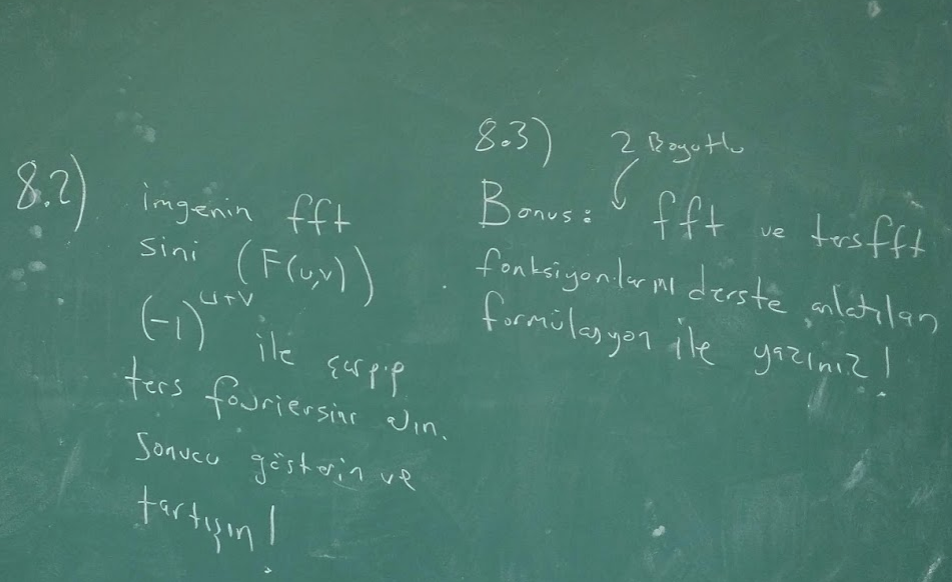 8.2)
imgenin fft
sini (F(u,v))
(-1)^{u+v} ile çarpıp
ters fouriersini alın.
Sonucu gösterin ve
tartışın!
8.3) 2 Boyutlu
Bonus: fft ve ters fft
fonksiyonlarını derste anlatılan
formülasyon ile yazınız!